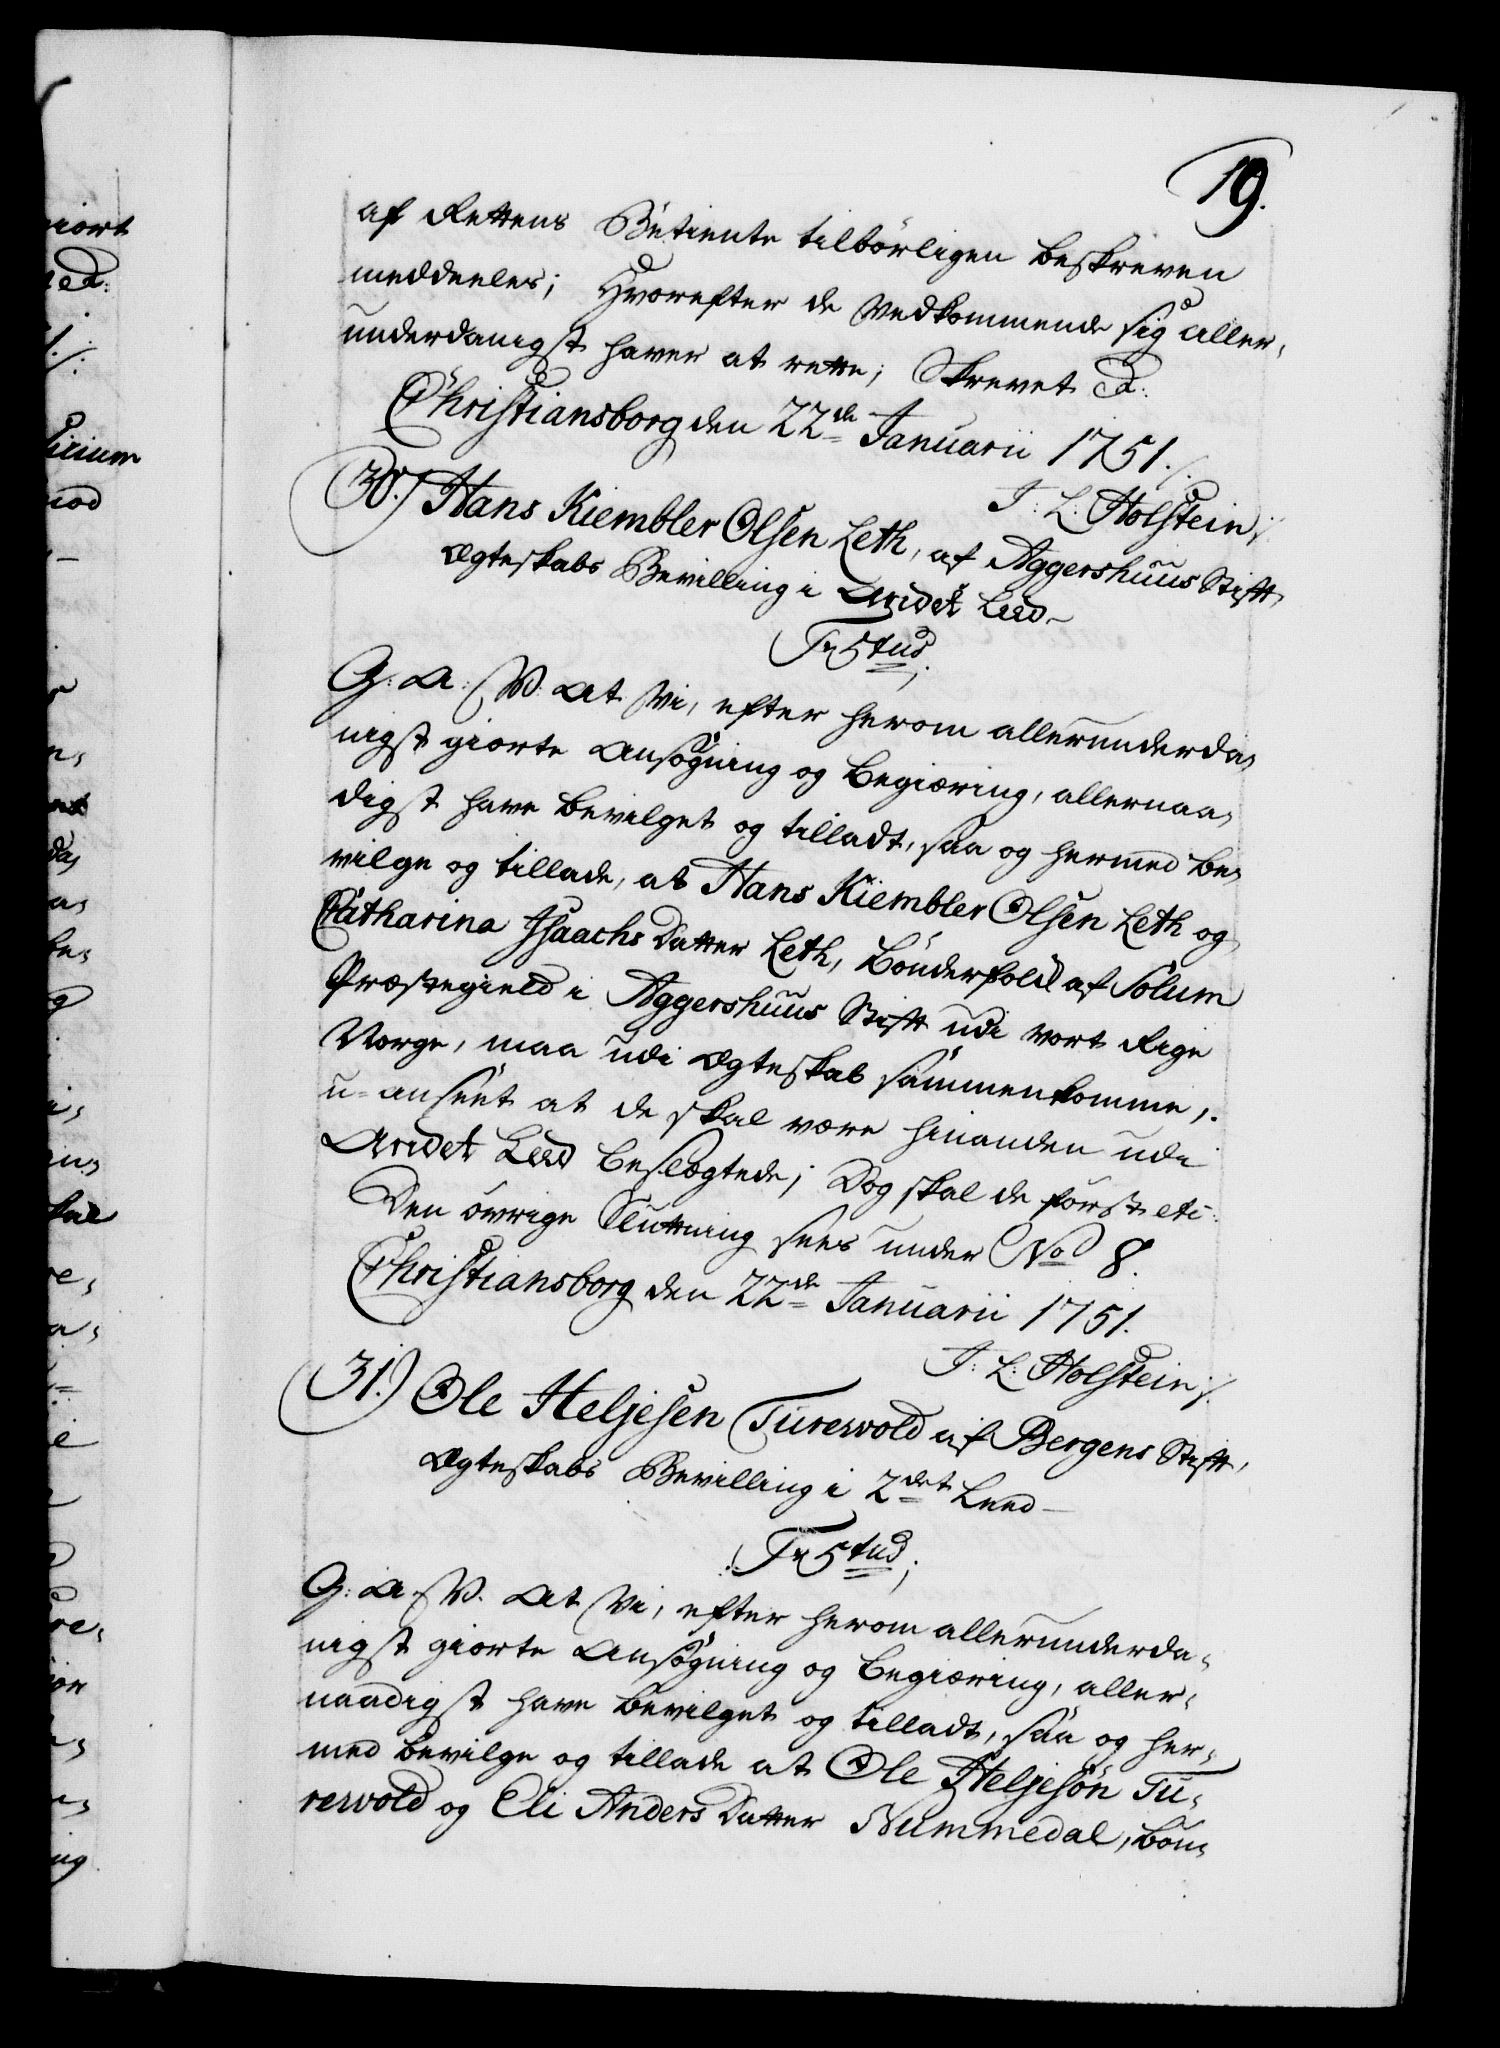 19.
af Rettens Betiente tilbörligen beskreven
meddeeles; Hvorefter de Vedkommende sig aller,
underdanigst haver at rette; Skrevet
Christiansborg den 22de Januarii 1751./.
J: L: Holstein /.
30.) Hans Kiembler Olsen Leth, af Aggershuus Stift
Ægteskabs Bevilling i Andet Leed
G: A: V: At Vi, efter herom allerunderda,
nigst giorte Ansögning og Begiæring, allernaa,
digst have bevilget og tilladt, saa og hermed be,
vilge og tillade, at Hans Kiembler Olsen Leth og
Catharina Isaachs Datter Leth, Bönderfolk af Solum
Præstegield i Aggershuus Stift udi vort Rige
Norge, maa udi Ægteskab sammenkomme,
u-anseet at de skal være hinanden udi
Andet Leed beslægtede; Dog skal de först etc:
Den övrige Slutning sees under No 8.
Christiansborg den 22de Januarii 1751.
J: L: Holstein /.
31.) Ole Heljesen Turewold af Bergens Stift,
Ægteskabs Bevilling i 2det Leed
G: A: V. At Vi, efter herom allerunderda,
nigst giorte Ansögning og Begiæring, aller,
naadigst have bevilget og tilladt, saa og her,
med bevilge og tillade at Ole Heljesön Tu,
rewold og Eli Anders Datter Nummedal, bön,